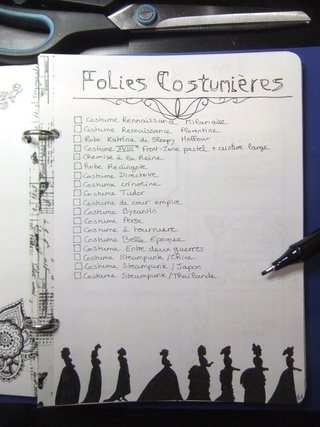 Folies Costumières
Costume Renaissance Milanaise
Costume Rennaissance Florentine
Robe Katrina de Sleepy Hollow
Costume XVIIIe Front-Zone pastel + ceinture large
Chemise à la Reine
Robe Redingote
Costume Directoire
Costume crinoline
Costume Tudor
Costume de cour empire
Costume Byzantin
Costume Perse
Costume à tournure
Costume Belle Epoque
Costume Entre deux guerres
Costume Steampunk / Chine
Costume Steampunk / Japon
Costume Steampunk / Thaïlande